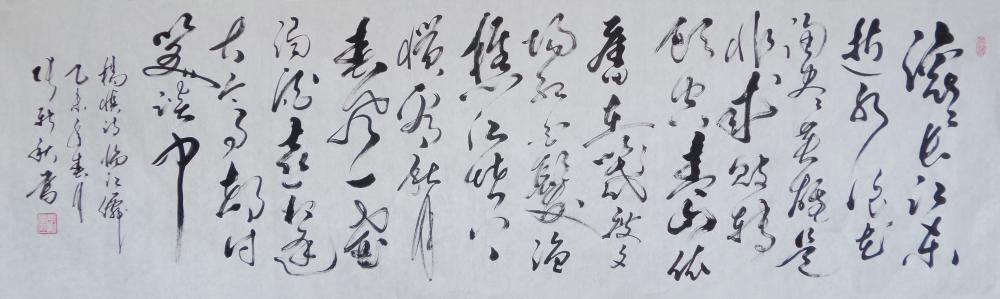 滚滚长江东
逝水浪花
淘尽英雄是
非成败转
头空青山依
舊在幾度夕
阳红白髮渔
樵江渚上
惯看秋月
春风一壶
浊酒喜相逢
古今多少事都付
笑谈中
杨慎诗临江僊
乙未年春月
书